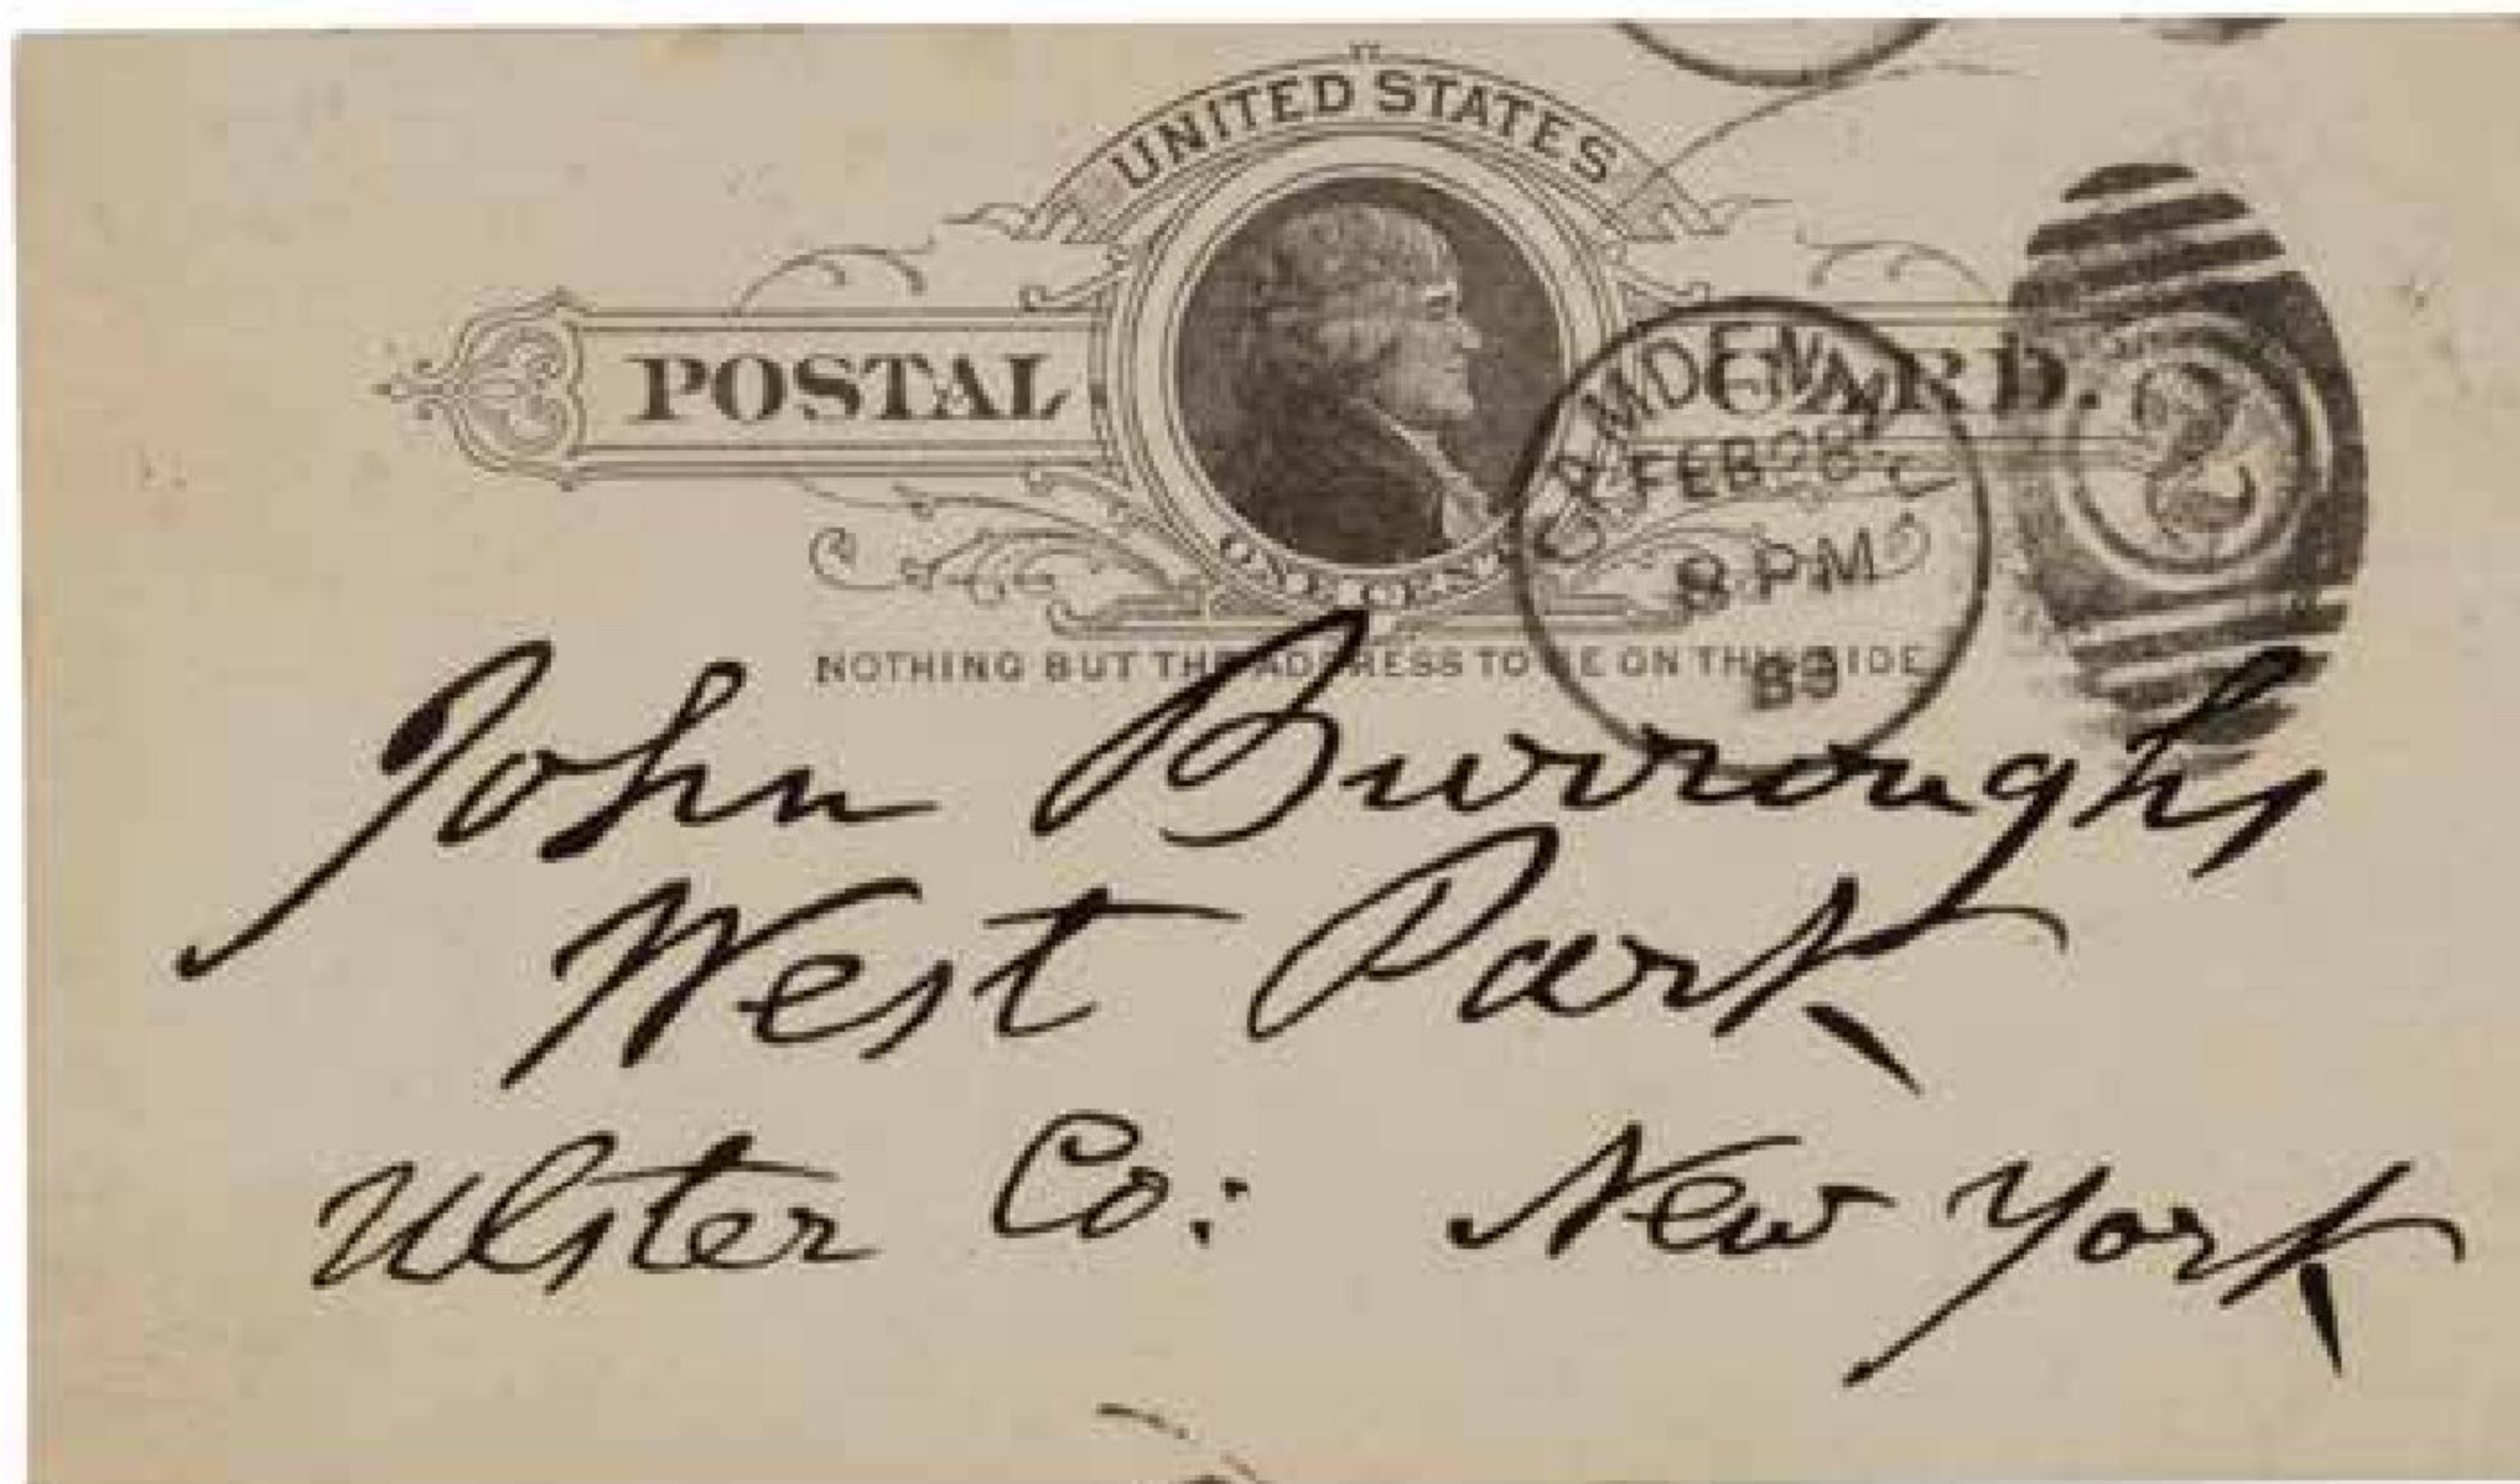 UNITED STATES
POSTAL CARD.
ONE CENT
CAMDEN N.J.
FEB 28
8 PM
89
2
NOTHING BUT THE ADDRESS TO BE ON THIS SIDE
John Burroughs
West Park
Ulster Co: New York